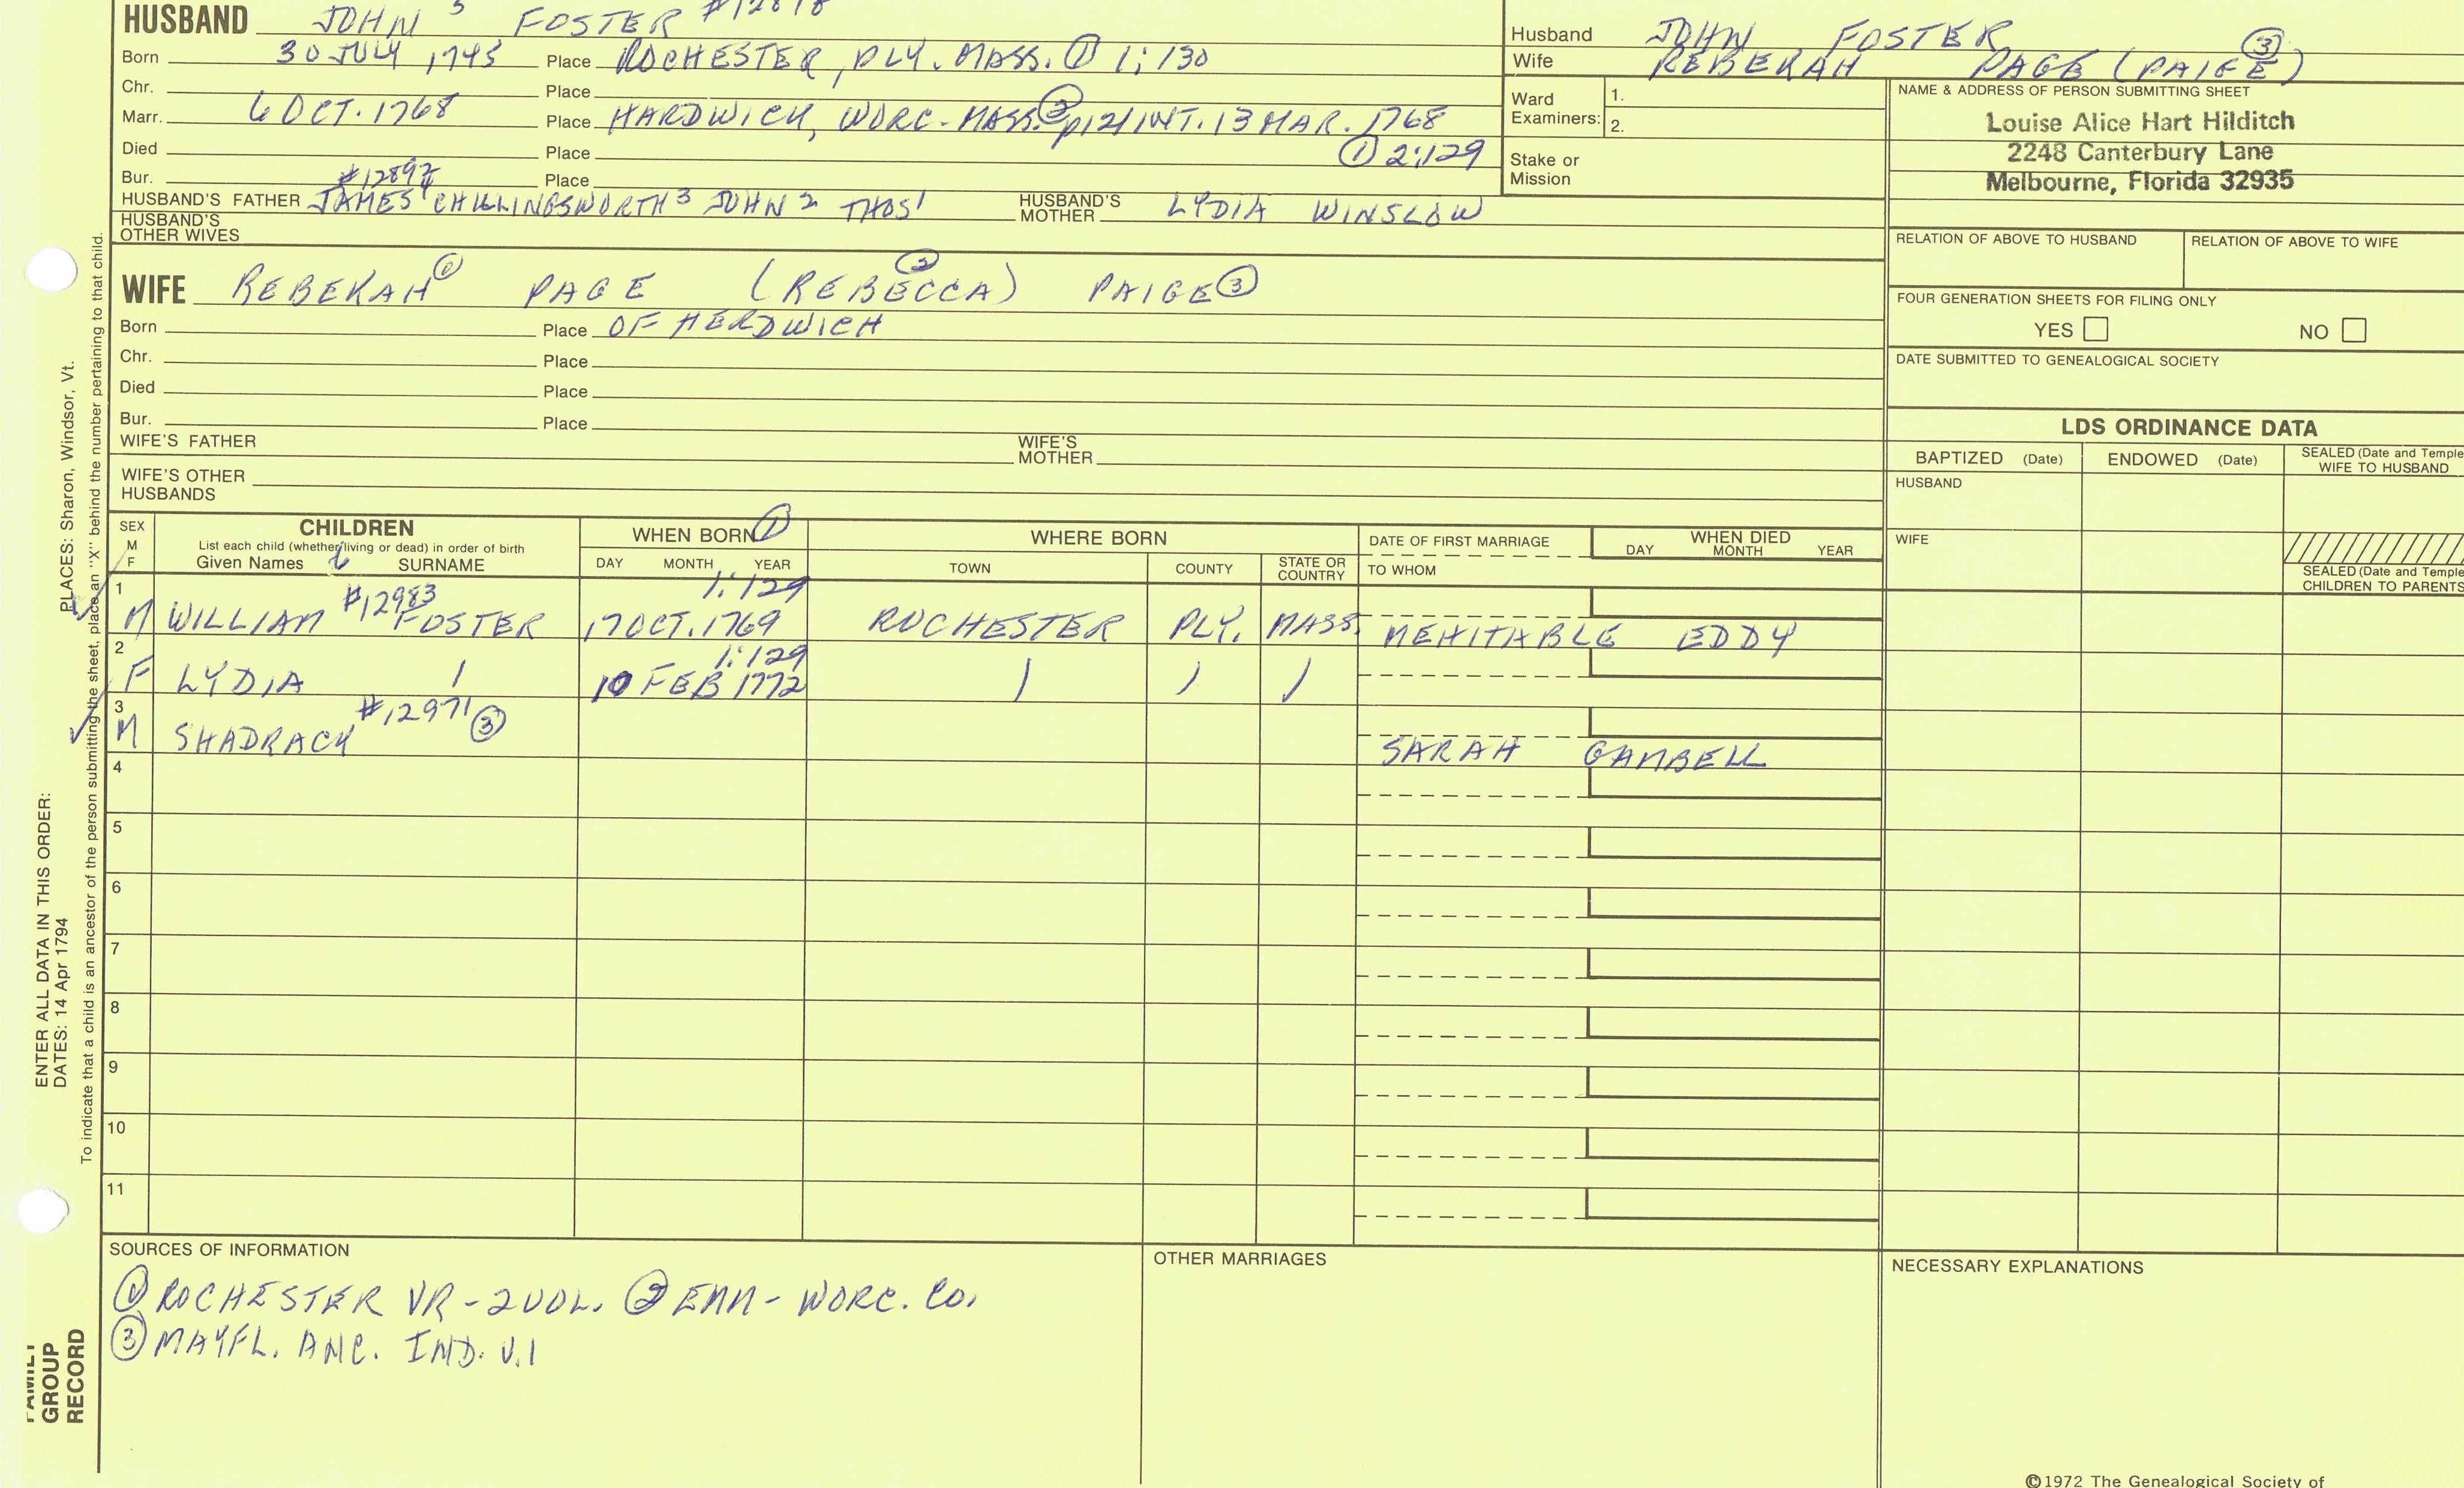 HUSBAND JOHN 5 FOSTER #12818
Born 30 JULY 1745 Place ROCHESTER, PLY. MASS. ① 1:130
Chr. Place
Marr. 6 OCT. 1768 Place HARDWICH, WORC. MASS. ② p121 INT. 13 MAR. 1768
① 2:129
Died Place
Bur. Place
#12897
HUSBAND'S FATHER JAMES 4 CHILLINGSWORTH 3 JOHN 2 THOS 1 HUSBAND'S MOTHER LYDIA WINSLOW
HUSBAND'S OTHER WIVES
Husband JOHN FOSTER
Wife REBEKAH PAGE (PAIGE) ③
Ward Examiners: 1.
2.
Stake or Mission
NAME & ADDRESS OF PERSON SUBMITTING SHEET
Louise Alice Hart Hilditch
2248 Canterbury Lane
Melbourne, Florida 32935
RELATION OF ABOVE TO HUSBAND RELATION OF ABOVE TO WIFE
FOUR GENERATION SHEETS FOR FILING ONLY
YES NO
DATE SUBMITTED TO GENEALOGICAL SOCIETY
WIFE REBEKAH ① PAGE (REBECCA) ② PAIGE ③
Born Place OF HERDWICH
Chr. Place
Died Place
Bur. Place
WIFE'S FATHER WIFE'S MOTHER
WIFE'S OTHER HUSBANDS
LDS ORDINANCE DATA
BAPTIZED (Date) ENDOWED (Date) SEALED (Date and Temple WIFE TO HUSBAND
HUSBAND
WIFE
SEALED (Date and Temple CHILDREN TO PARENTS
SEX M F
CHILDREN
List each child (whether living or dead) in order of birth
Given Names SURNAME
WHEN BORN ①
DAY MONTH YEAR
WHERE BORN
TOWN COUNTY STATE OR COUNTRY
DATE OF FIRST MARRIAGE
TO WHOM
WHEN DIED
DAY MONTH YEAR
1 #12983 1:129
M WILLIAM FOSTER 17 OCT. 1769 ROCHESTER PLY. MASS. MEHITABLE EDDY
2 1:129
F LYDIA 10 FEB 1772
3 #12971 ③
M SHADRACK SARAH GAMBELL
4
5
6
7
8
9
10
11
SOURCES OF INFORMATION
① ROCHESTER VR-2VOL. ② EMM- WORC. CO.
③ MAYFL. ANC. IND. V.1
OTHER MARRIAGES
NECESSARY EXPLANATIONS
©1972 The Genealogical Society of
PLACES: Sharon, Windsor, Vt.
To indicate that a child is an ancestor of the person submitting the sheet, place an "X" behind the number pertaining to that child.
ENTER ALL DATA IN THIS ORDER:
DATES: 14 Apr 1794
FAMILY
GROUP
RECORD